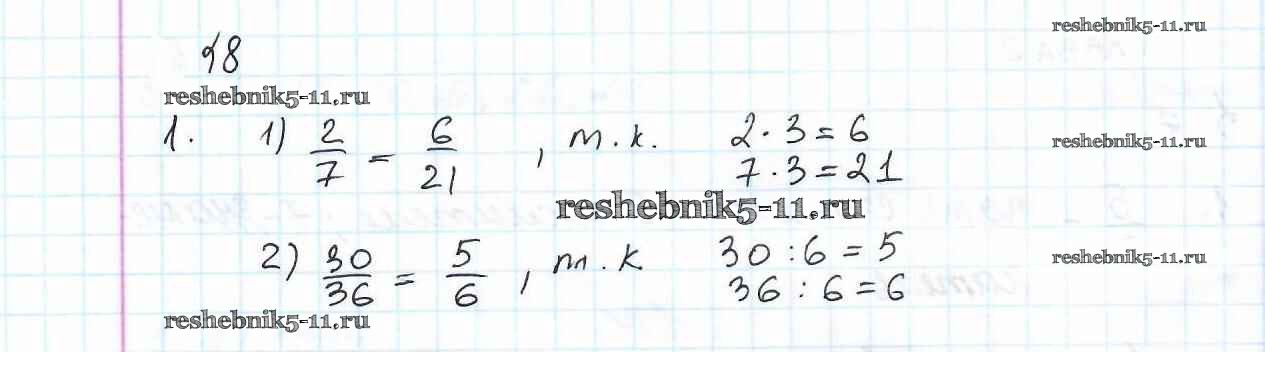 reshebnik5-11.ru
§8
reshebnik5-11.ru
1. 1) 2/7 = 6/21 , т.к. 2 · 3 = 6
7 · 3 = 21
reshebnik5-11.ru
reshebnik5-11.ru
2) 30/36 = 5/6 , т.к 30 : 6 = 5
36 : 6 = 6
reshebnik5-11.ru
reshebnik5-11.ru